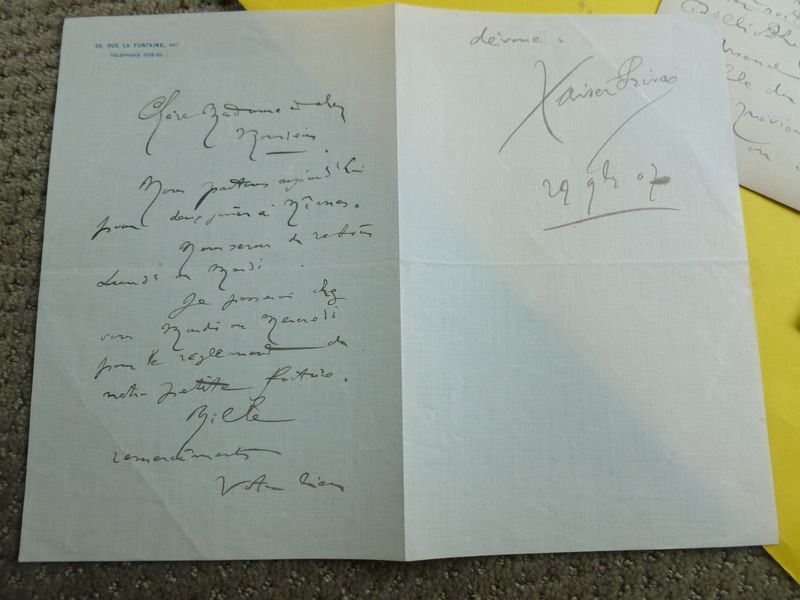 29, RUE LA FONTAINE, XVIᵉ
TÉLÉPHONE
Chère Madame et cher
Monsieur
Nous partons aujourd'hui
pour deux jours à Nîmes.
Nous serons de retour
Lundi ou Mardi.
Je passerai chez
vous Mardi ou Mercredi
pour le règlement de
notre petite facture.
Mille
remerciements
Votre bien
dévoué.
Xavier Privas
29 9bre 07